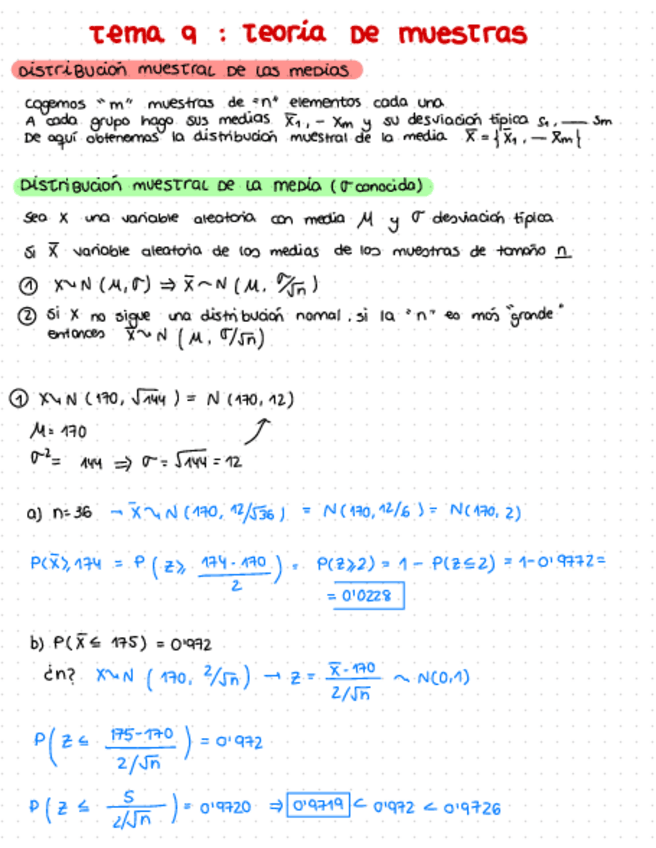 Tema 9 : Teoría De muestras
Distribución muestral De las medias
Cogemos "m" muestras de "n" elementos cada una
A cada grupo hago sus medias x̄₁, - x̄m y su desviación típica s₁, — sm
De aquí obtenemos la distribución muestral de la media x̄ = {x̄₁, - x̄m}
Distribución muestral De la media (σ conocida)
Sea X una variable aleatoria con media M y σ desviación típica
Si X̄ variable aleatoria de los medias de los muestras de tamaño n
① X~N (M,σ) ⇒ x̄ ~ N (M, σ/√n)
② Si X no sigue una distribución normal, si la "n" es más "grande"
entonces x̄~N (M, σ/√n)
① X~N (170, √144) = N (170, 12)
M = 170
σ² = 144 ⇒ σ = √144 = 12
a) n=36 → x̄~N (170, 12/√36) = N(170, 12/6) = N(170, 2)
P(x̄ ≥ 174 = P (z ≥ (174-170)/2) = P(z≥2) = 1 - P(z≤2) = 1-0'9772 =
= 0'0228
b) P(x̄ ≤ 175) = 0'972
¿n? X~N (170, 2/√n) → z = (x̄-170)/(2/√n) ~ N(0,1)
P(z ≤ (175-170)/(2/√n)) = 0'972
P(z ≤ 5/(2/√n)) = 0'9720 ⇒ 0'9719 < 0'972 < 0'9726